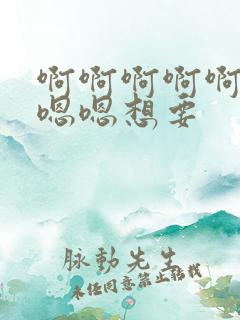 啊啊啊啊啊
嗯嗯想要
脉動先生
未经同意禁止转载